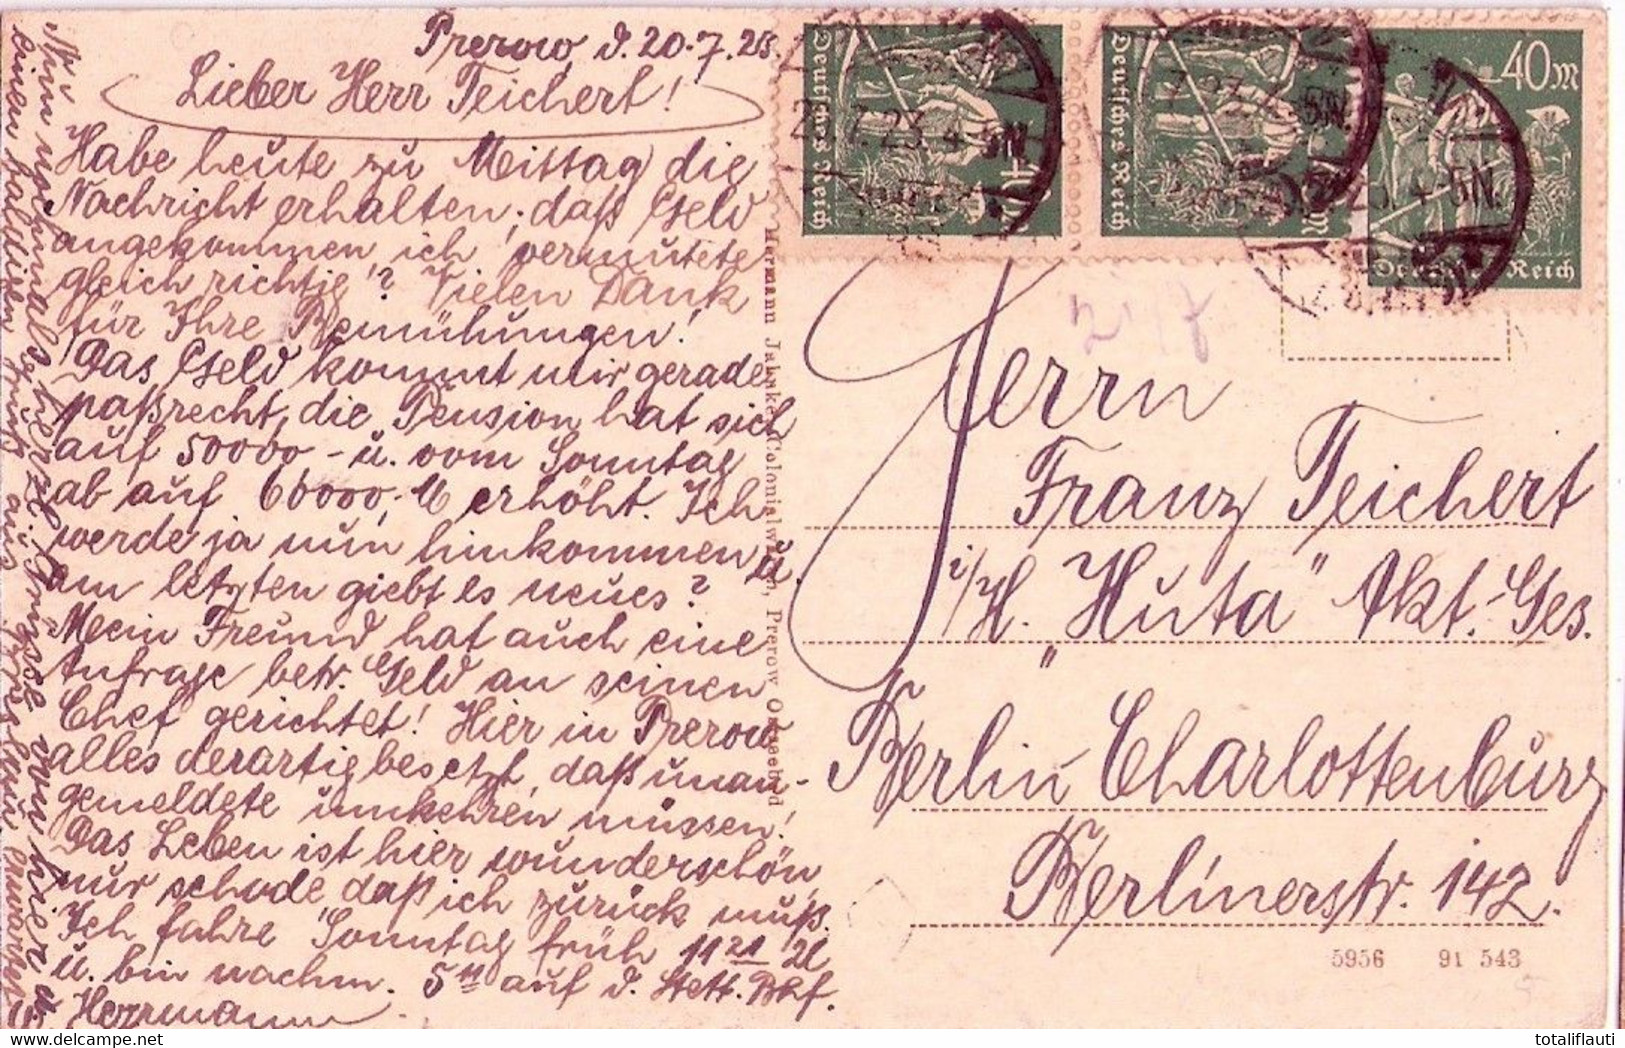 Prerow, d. 20.7.23.
Lieber Herr Teichert!
Habe heute zu Mittag die
Nachricht erhalten, daß Geld
angekommen ich vermutete
gleich richtig? Vielen Dank
für Ihre Bemühungen!
Das Geld kommt mir gerade
paßrecht, die Pension hat sich
auf 50000 - u. vom Sonntag
ab auf 60000,- M erhöht. Ich
werde ja nun hinkommen u.
am letzten giebt es neues?
Mein Freund hat auch eine
Anfrage betr. Geld an seinen
Chef gerichtet! Hier in Prerow
alles derartig besetzt, daß unan-
gemeldete umkehren müssen!
Das Leben ist hier wunderschön,
nur schade daß ich zurück muß.
Ich fahre Sonntag früh 11 21
u. bin nachm. 5 11 auf d. Stett. Bhf.
Herrmann
Nun nochmals herzl. Grüsse von hier u.
einen
Hermann Jahnke, Colonialwaren, Prerow Ostseebad
Deutsches Reich 40
Deutsches Reich
40 M
Deutsches Reich
7.23. 4-5N.
Herrn
Franz Teichert
i/H. "Huta" Akt.-Ges.
Berlin Charlottenburg
Berlinerstr. 142.
5956 91 543
totaliflauti